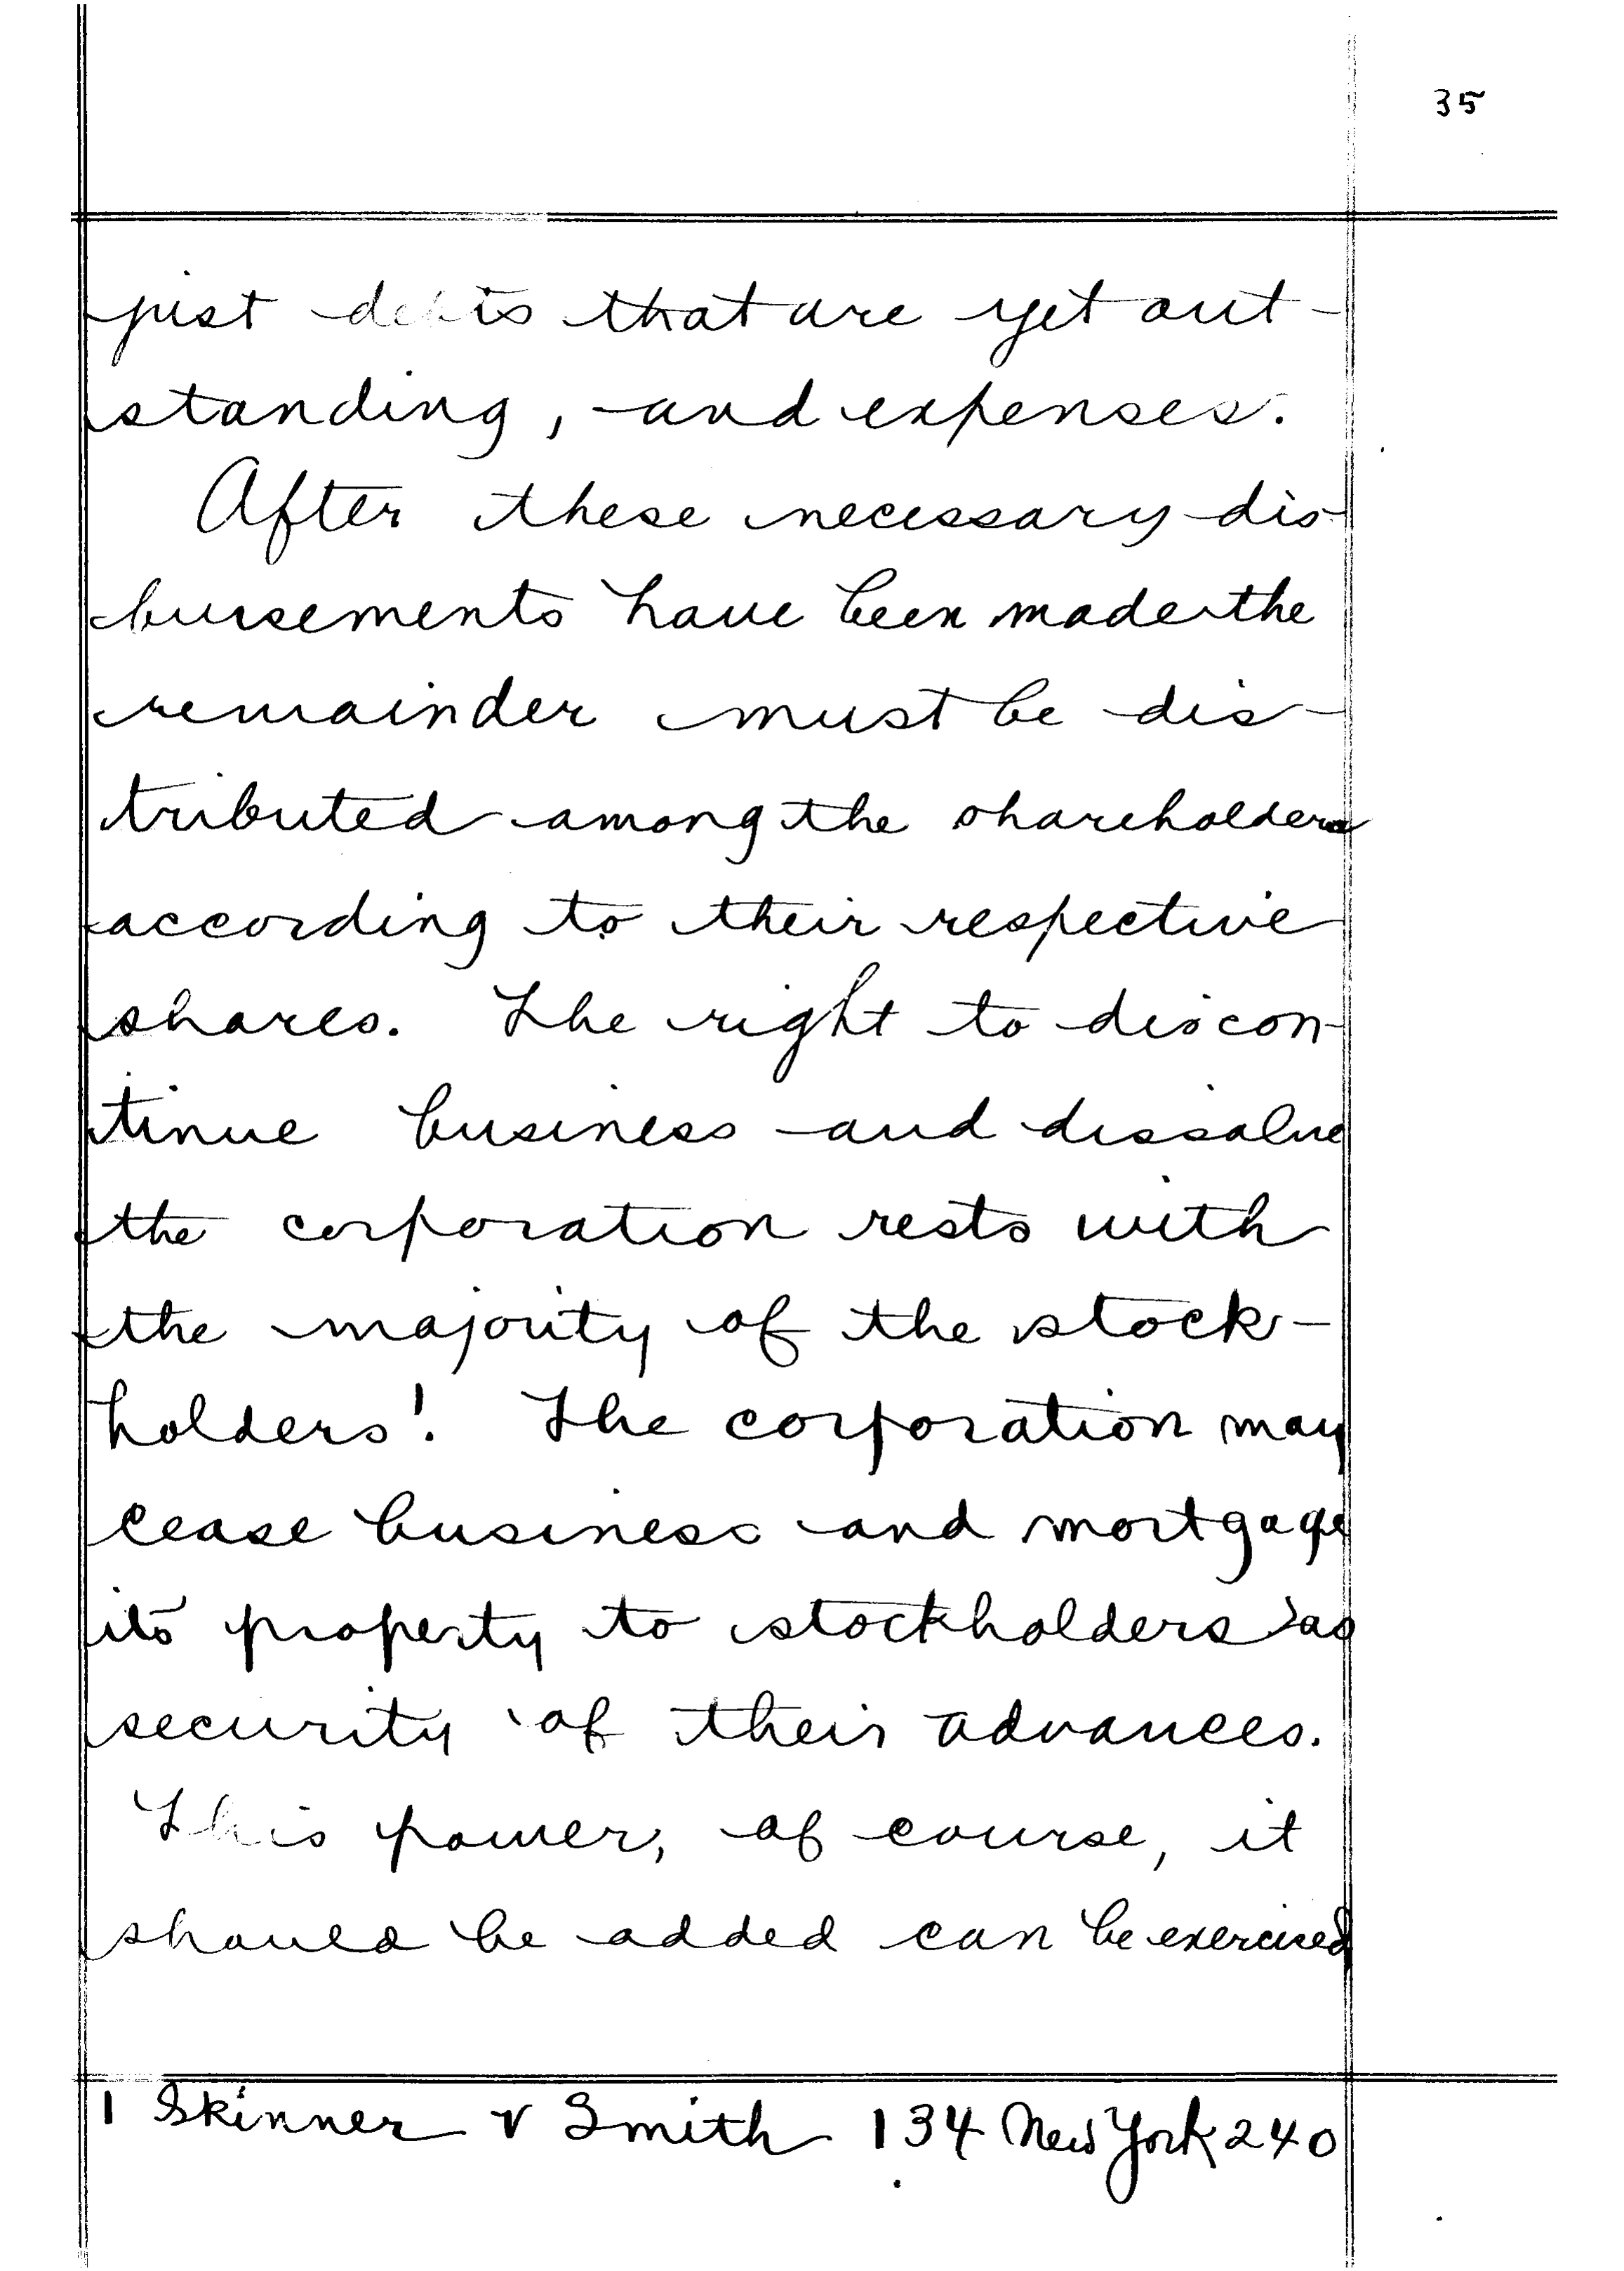 35
just debts that are yet out-
standing, and expenses.
After these necessary dis-
bursements have been made the
remainder must be dis-
tributed among the shareholders
according to their respective
shares. The right to discon-
tinue business and dissolve
the corporation rests with
the majority of the stock-
holders¹. The corporation may
cease business and mortgage
its property to stockholders as
security of their advances.
This power, of course, it
should be added can be exercised
1 Skinner v Smith 134 New York 240